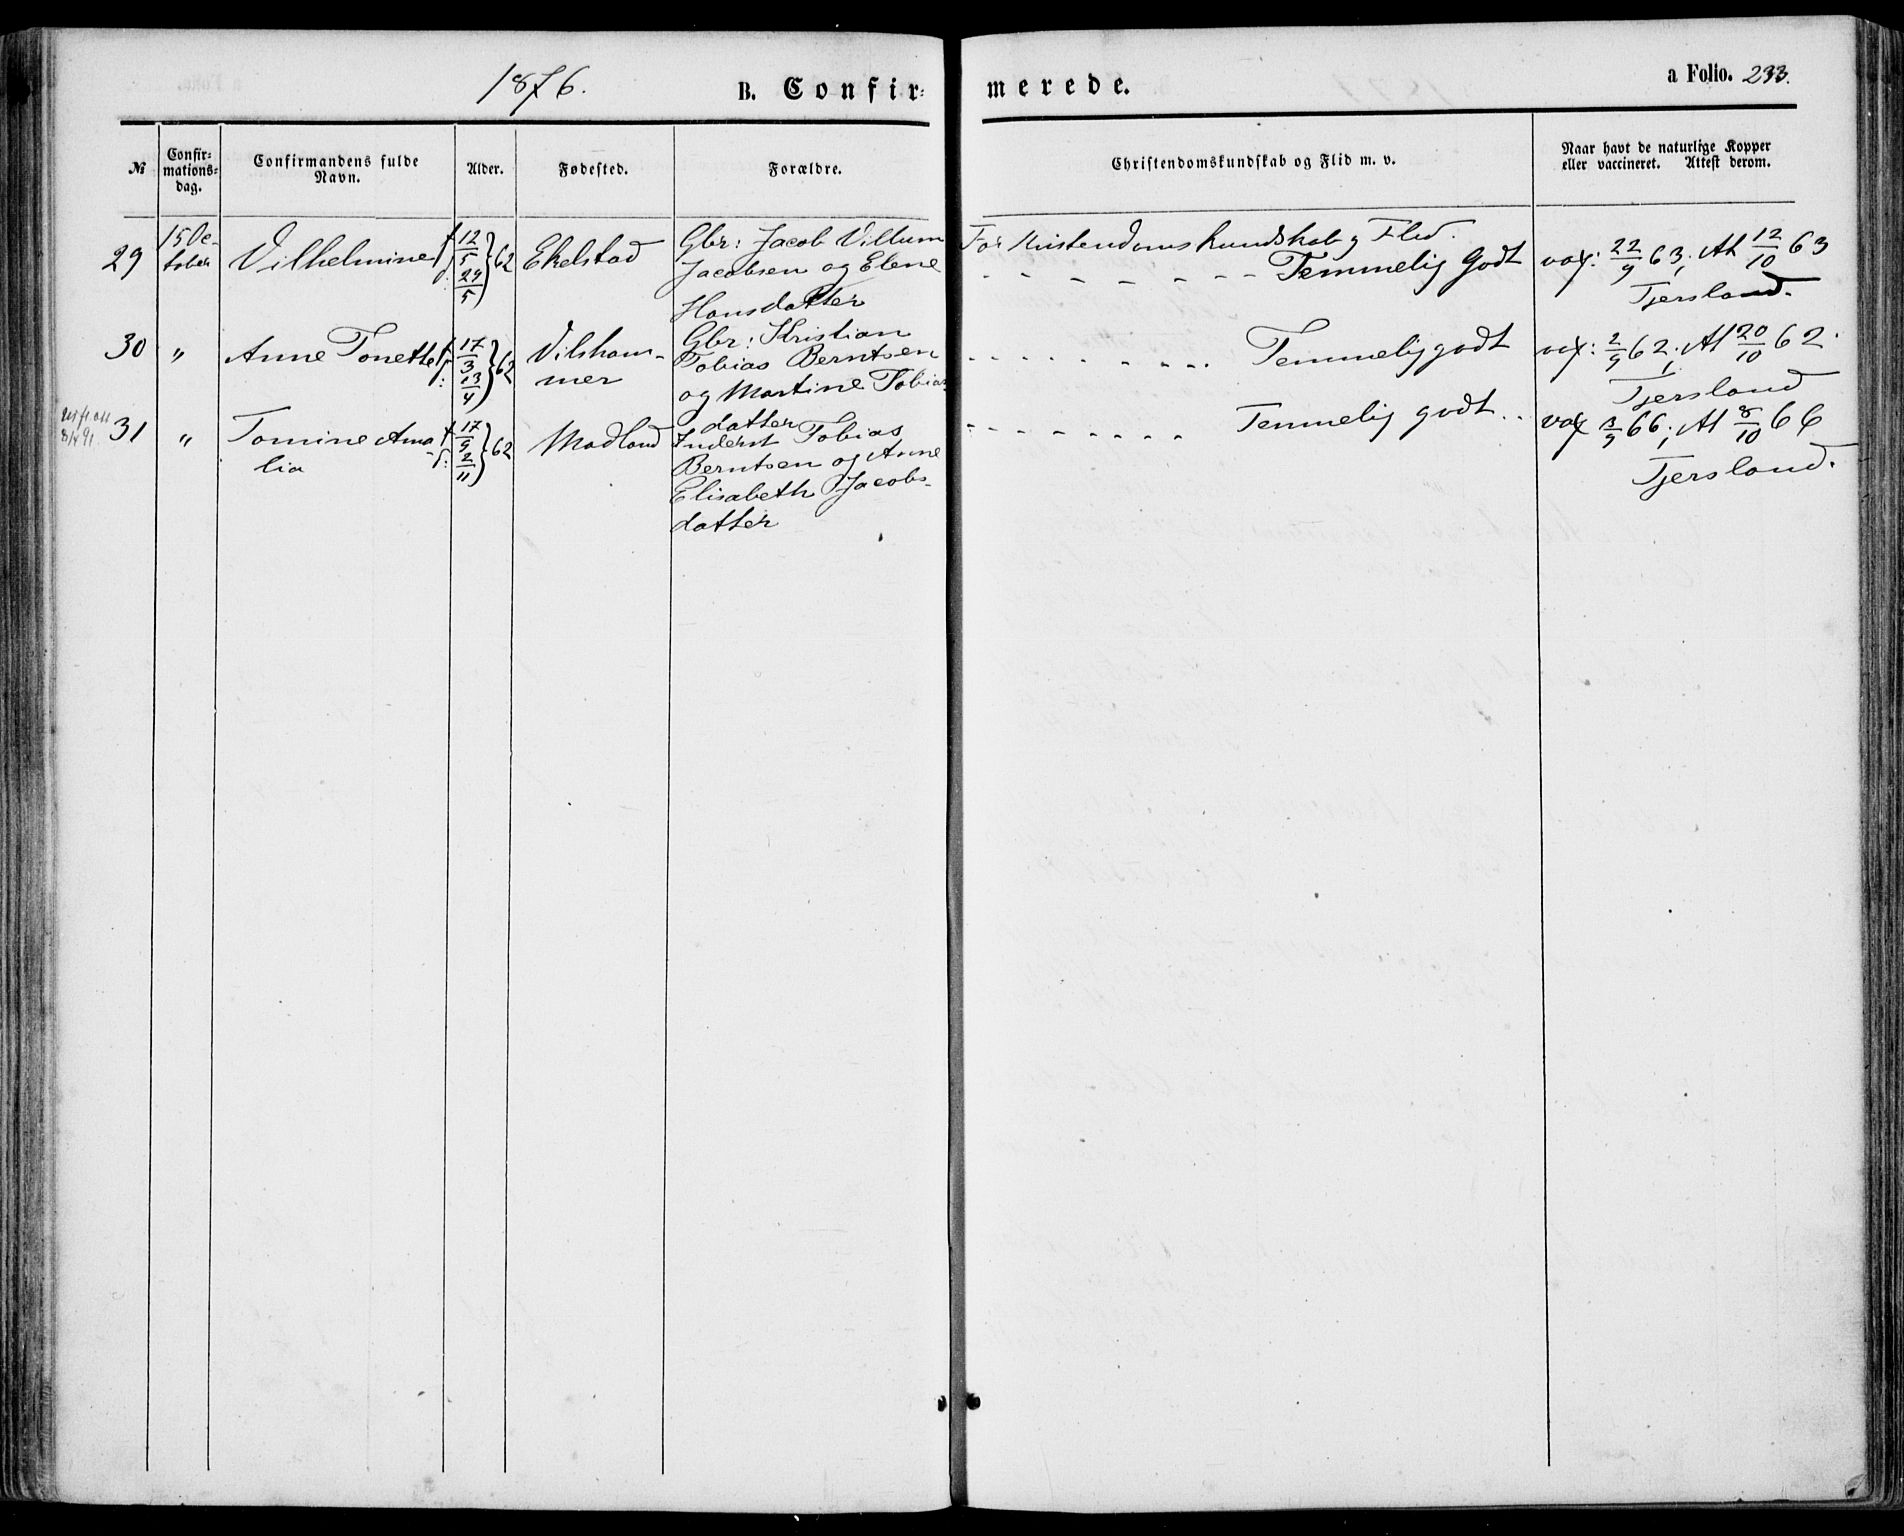 1876.
B. Confir-
merede.
a Folio. 233.
№
Confir-
mations-
dag.
Confirmandens fulde
Navn.
Alder.
Fødested.
Forældre.
Christendomskundskab og Flid m. v.
Naar havt de naturlige Kopper
eller vaccineret. Attest derom.
29
15 Oc-
tober
Vilhelmine
f 12/5
24/5 } 62
Ekelstad
Gbr: Jacob Villum
Jacobsen og Elene
Hansdatter
For Kristendomskundskab og Flid.
- - - - - - - Temmelig Godt
vax: 22/9 63; At 12/10 63
Tjersland.
30
"
Anne Tonette
f 17/3
f: 13/4 } 62
Vilsham-
mer
Gbr: Kristian
Tobias Berntsen
og Martine Tobias
datter
- - - - - - - Temmelig godt
vax: 2/9 62; At 20/10 62.
Tjersland
8/4 91
31
"
Tomine Ama-
lia
f 17/9
f: 2/11 } 62
Madland
Inderst Tobias
Berntsen og Anne
Elisabeth Jacobs-
datter
- - - - - - - Temmelig godt
vax 3/9 66; At 8/10 66
Tjersland.